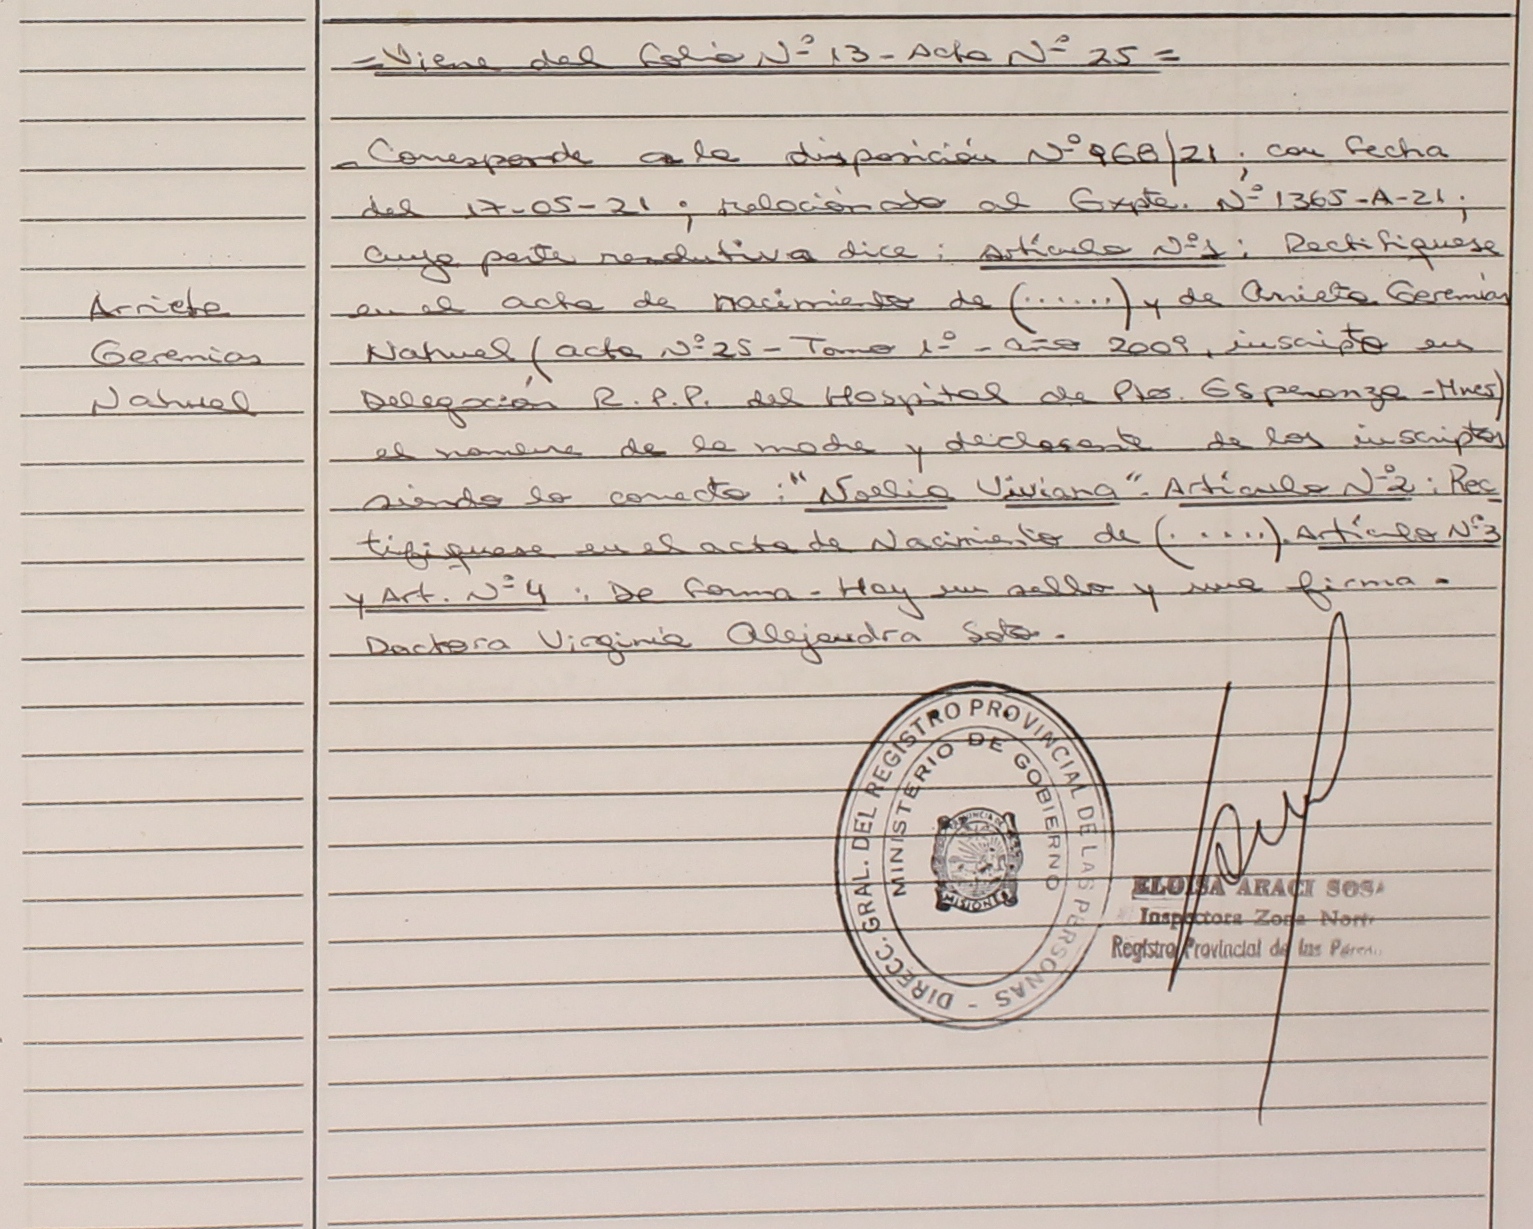 =Viene del Folio Nº 13 - Acta Nº 25=
- Corresponde a la disposición Nº 968/21; con fecha
del 17-05-21; relacionado al Expte. Nº 1365-A-21;
cuya parte resolutiva dice: Artículo Nº1: Rectifiquese
en el acta de nacimiento de (......) y de Arrieta Geremías
Nahuel (acta Nº 25 - Tomo 1º - año 2009, inscripto en
Delegación R.P.P. del Hospital de Pto. Esperanza - Mnes)
el nombre de la madre y declarante de los inscriptos
siendo lo correcto: "Noelia Viviana". Artículo Nº2: Rec-
tifiquese en el acta de Nacimiento de (.....). Artículo Nº3
y Art. Nº 4: De Forma - Hay un sello y una firma -
Doctora Virginia Alejandra Soto.-
Arrieta
Geremias
Nahuel
DIRECC. GRAL. DEL REGISTRO PROVINCIAL DE LAS PERSONAS -
MINISTERIO DE GOBIERNO
PROVINCIA DE
MISIONES
ELOISA ARACI SOSA
Inspectora Zona Norte
Registro Provincial de las Person